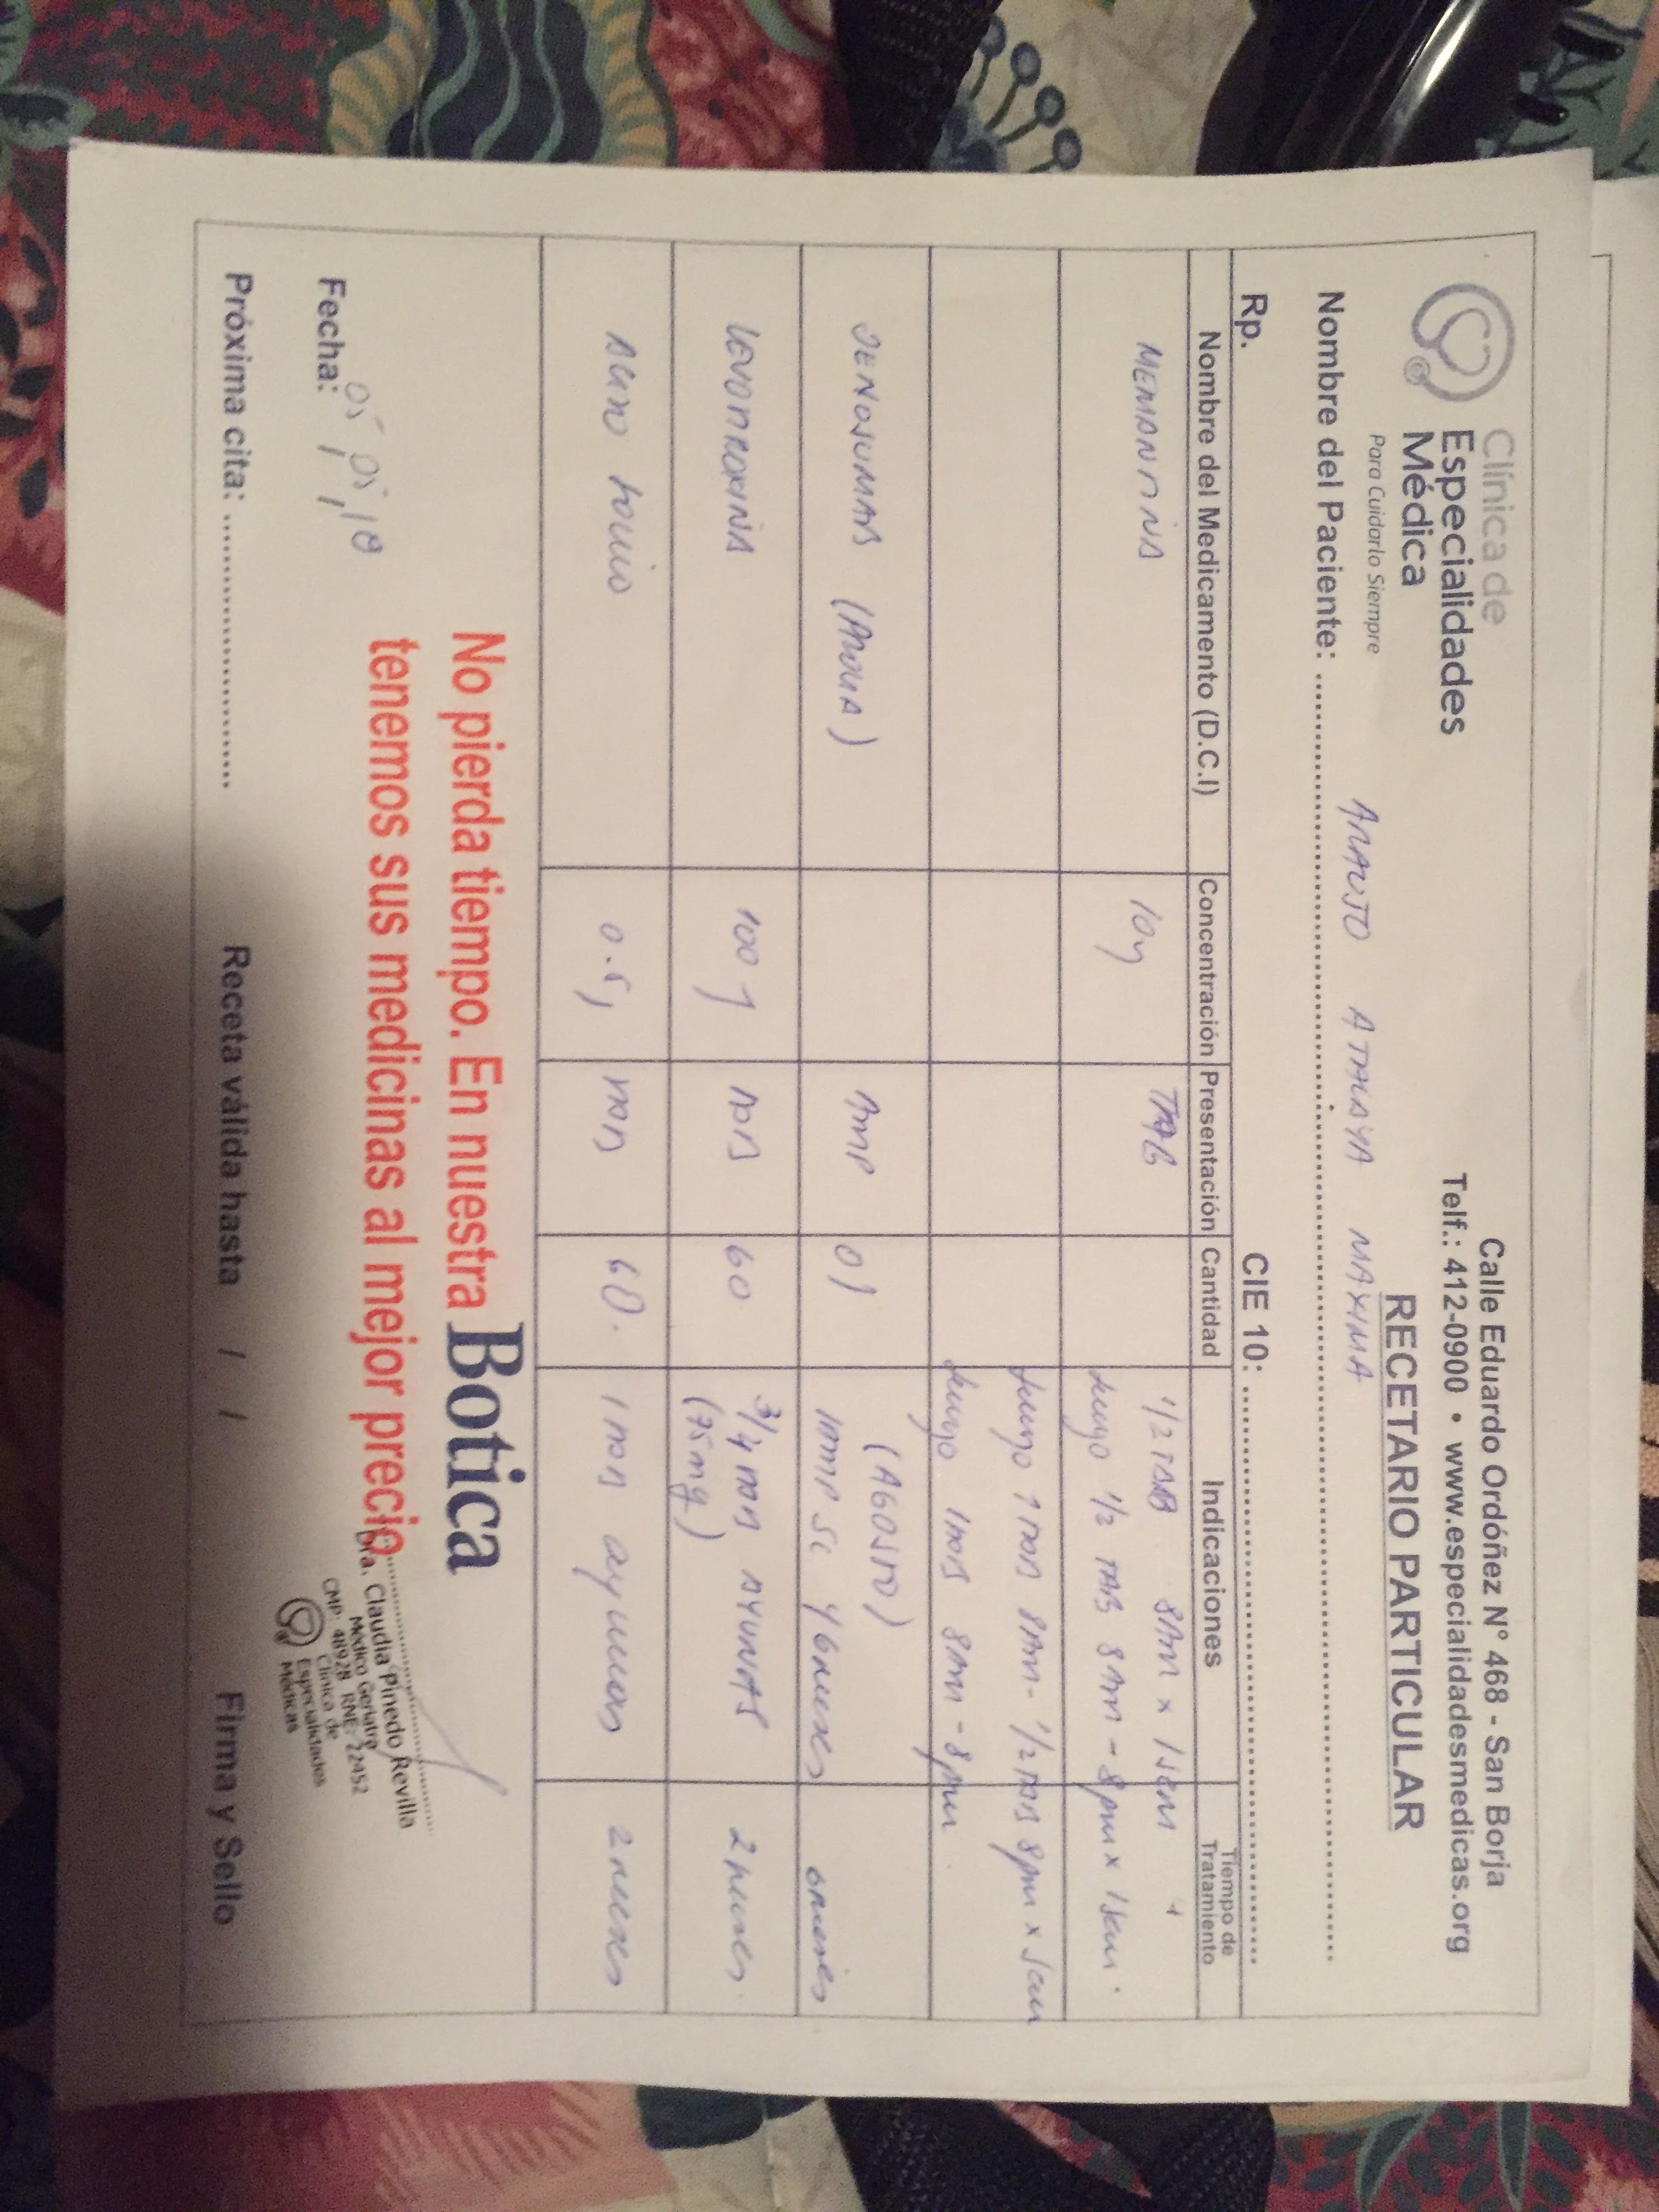 Clínica de
Especialidades
Médica
Para Cuidarlo Siempre
Calle Eduardo Ordóñez N° 468 - San Borja
Telf.: 412-0900 • www.especialidadesmedicas.org
RECETARIO PARTICULAR
Nombre del Paciente: ARAUJO ATALAYA MAXIMA
Rp.
CIE 10:
Nombre del Medicamento (D.C.I) Concentración Presentación Cantidad Indicaciones Tiempo de Tratamiento
MEMANTINA 10 TAB 1/2 TAB 8Am x 1sem
luego 1/2 TAB 8Am - 8pm x 1sem.
luego 1 TAB 8Am - 1/2 TAB 8pm x sem
luego 1 TAB 8Am - 8pm.
(AGOSTO)
DENOSUMAB AMP 01 1 AMP SC 6 meses
LEVOTIROXINA 100 TAB 60 3/4 TAB AYUNAS 2 meses.
(75mg)
ACIDO FOLICO 0.5 TAB 60. 1 TAB ayunas 2 meses
No pierda tiempo. En nuestra Botica
tenemos sus medicinas al mejor precio
Fecha: 05 / 05 / 18
Dra. Claudia Pinedo Revilla
Médico Geriatra
CMP: 48928 RNE: 22452
Clínica de
Especialidades
Médicas
Próxima cita:
Receta válida hasta / /
Firma y Sello